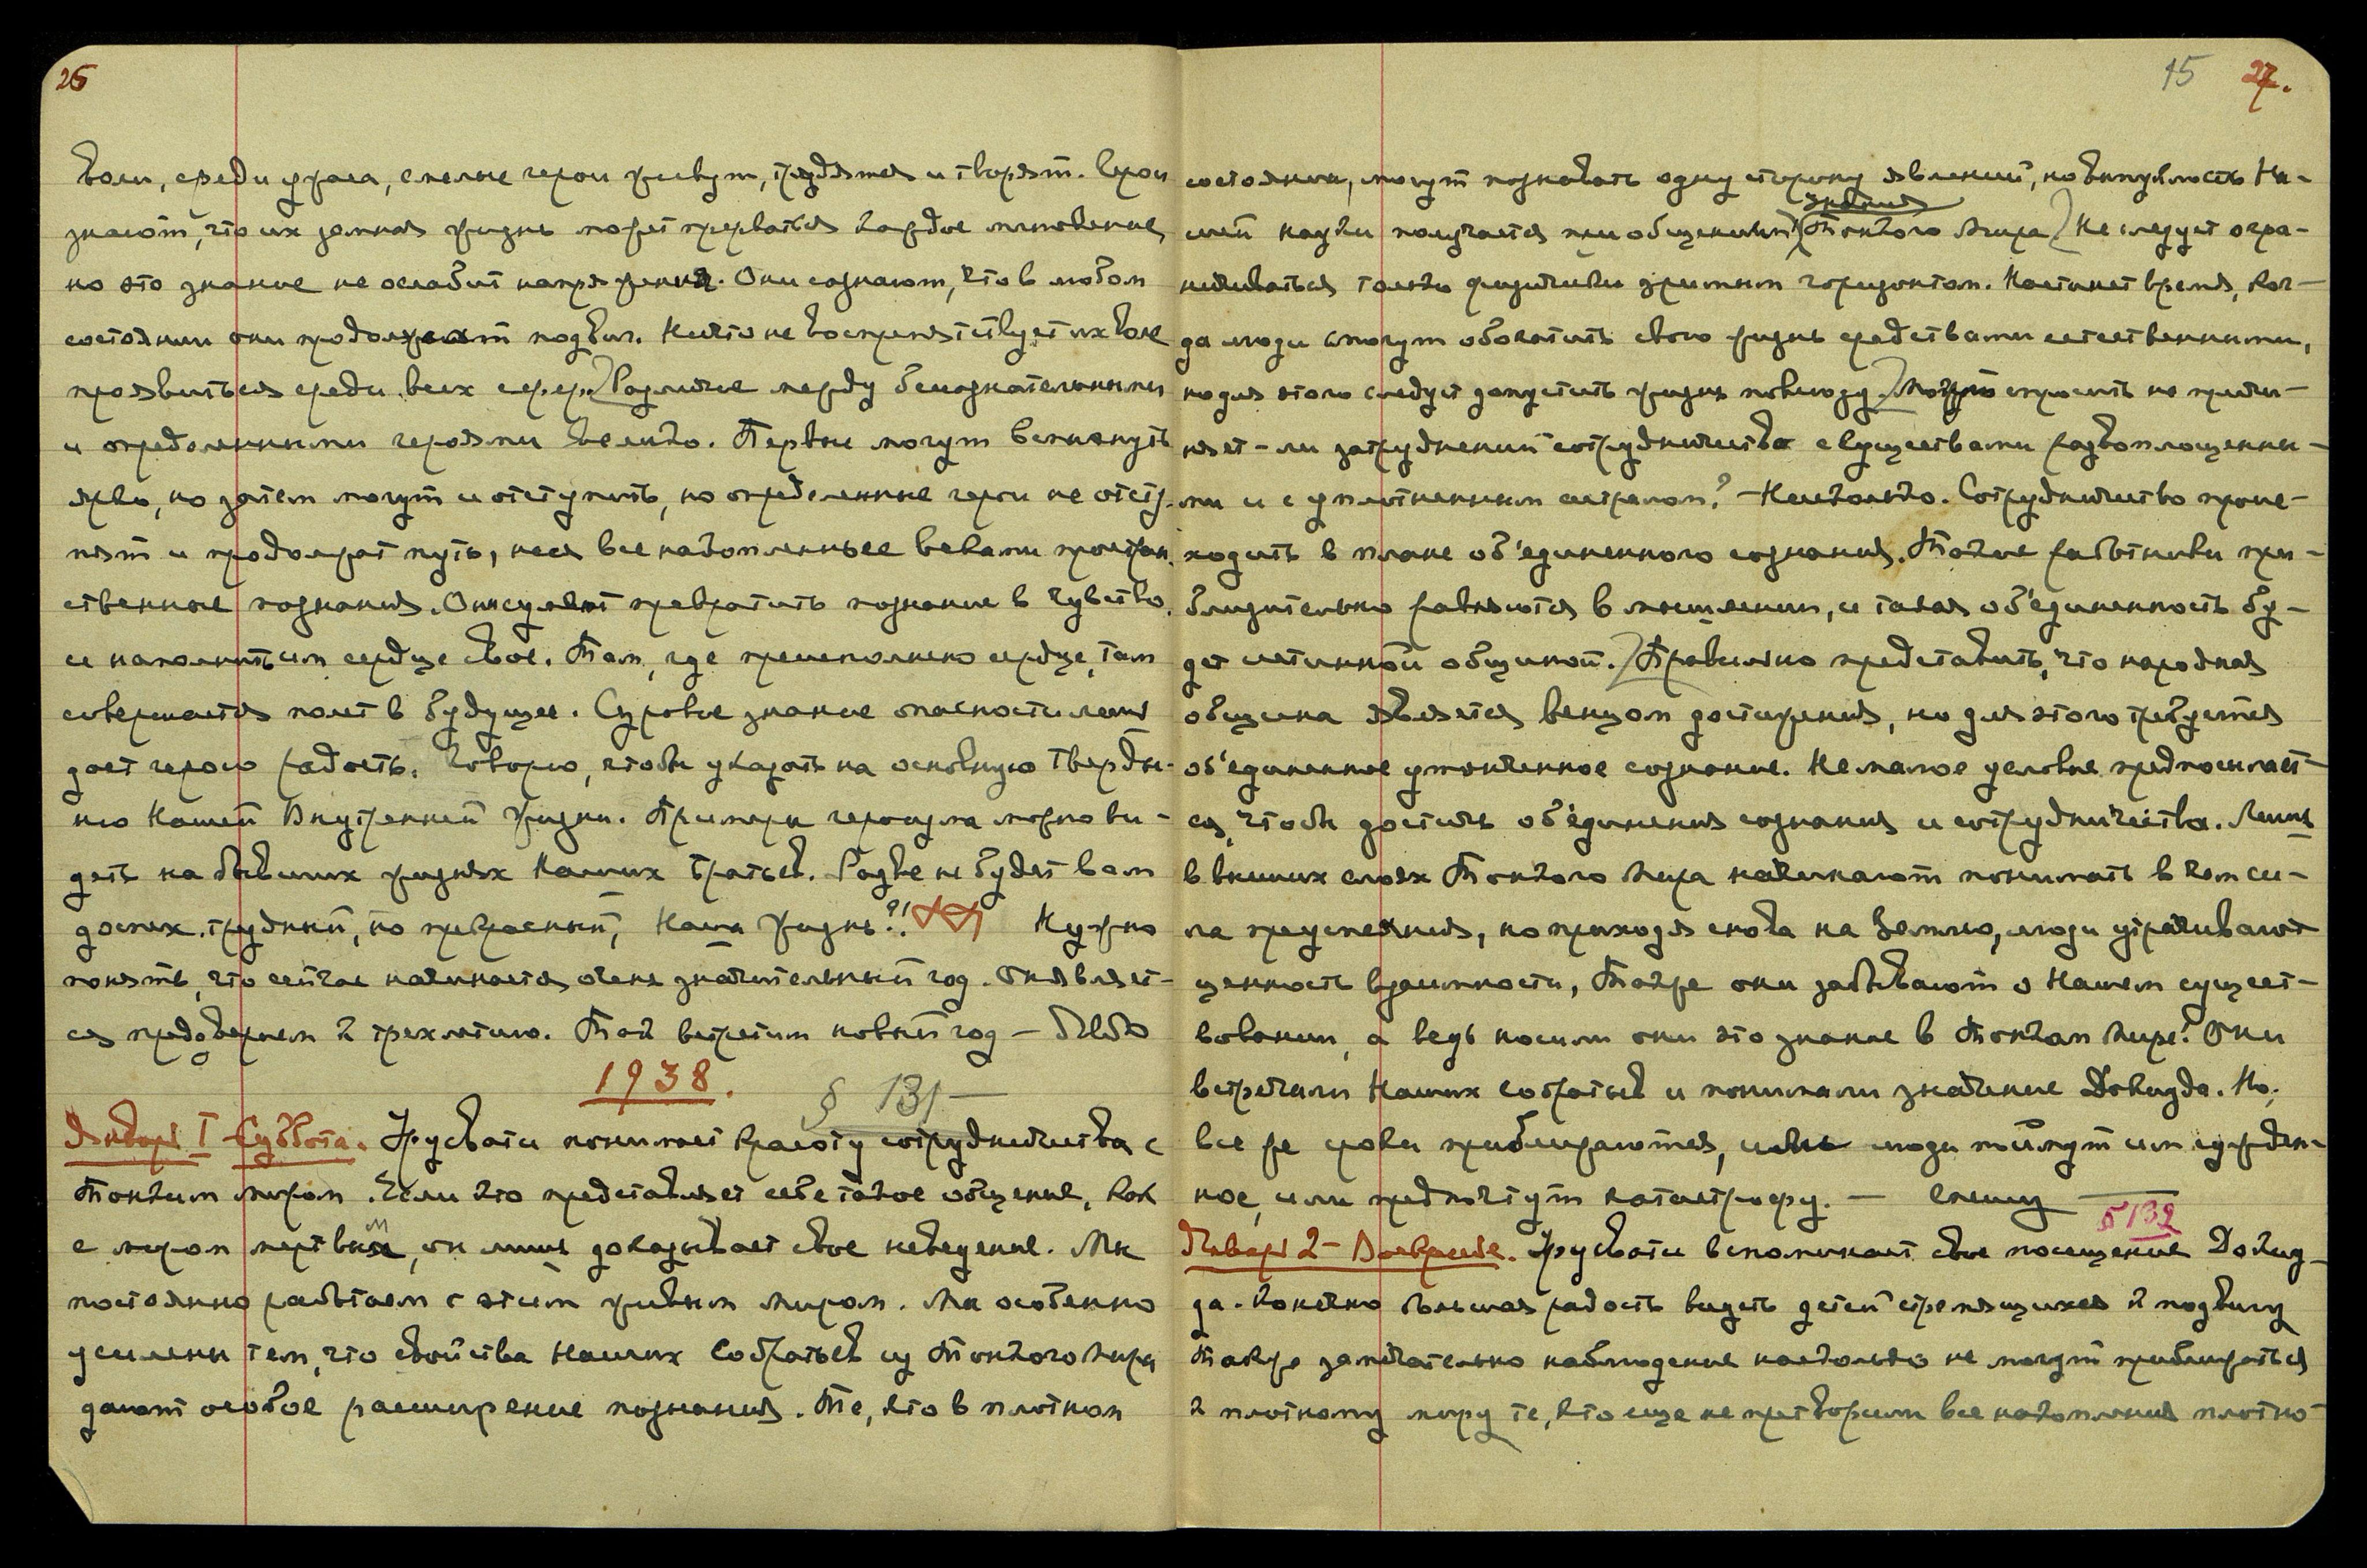 26
боли, среди ужаса, смелые герои живут, трудятся и творят. Герои
знают, что их земная жизнь может прерваться каждое мгновение,
но это знание не ослабит напряжения. Они сознают, что в любом
состоянии они продолжают подвиг. Ничто не воспрепятствует их воле
проявиться среди всех сфер. Различие между бессознательными
и определенными героями велико. Первые могут вспыхнуть
ярко, но затем могут и отступить, но определенные герои не отсту-
пят и продолжат путь, неся все накопленные веками пространс
ственные познания. Они сумеют превратить познание в чувство,
и наполнить им сердце свое. Там, где преисполнено сердце, там
совершается полет в будущее. Суровое знание опасности лишь
дает герою радость. Говорю, чтобы указать на основную твердын-
ню Нашей Внутренней жизни. Примеры героизма можно ви-
деть на бывших жизнях Наших Братьев. Разве не будет вам
доспех трудный, но прекрасный, Наша жизнь?! Нужно
понять, что сейчас начинается очень значительный год. Он являет-
ся преддверием к трехлетию. Так встретим новый год –
1938.
§ 131 —
Январь 1 – Суббота. Урусвати понимает красоту сотрудничества с
Тонким миром. Если кто представляет себе такое общение, как
с миром мертвым, он лишь доказывает свое неведение. Мы
постоянно работаем с этим живым миром. Мы особенно
усилены тем, что свойства Наших Собратьев из Тонкого Мира
дают особое расширение познания. Те, кто в плотном
15 27.
состоянии, могут познавать одну сторону явлений, но выпуклость На-
знания
шей науки получается при общении Тонкого Мира. Не следует огра-
ничиваться только физически зримым горизонтом. Настанет время, ког-
да люди смогут обогатить свою жизнь средствами естественными,
но для этого следует допустить жизнь повсюду. Могут спросить не причи-
няет-ли затруднений сотрудничество с существами развоплощенны-
ми и с уплотненным астралом? – Нисколько. Сотрудничество проис-
ходит в плане об'единенного сознания. Такие работники при-
близительно равняются в мышлении, и такая об'единенность бу-
дет истинной общиной. Правильно представить, что народная
община является венцом достижения, но для этого требуется
об'единенное утонченное сознание. Немалое условие предпосылает-
ся, чтобы достичь об'единения сознания и сотрудничества. Лишь
в высших слоях Тонкого Мира начинают понимать в чем си-
ла преуспеяния, но приходя снова на Землю, люди утрачивают
ценность взаимности, Также они забывают о Нашем сущест-
вовании, а ведь носили они это знание в Тонком Мире! Они
встречали Наших Собратьев и понимали значение Докиуда. Но,
все же сроки приближаются, или люди поймут им сужден-
ное, или предпочтут катастрофу. — Спешу —
§ 132
Январь 2 – Воскресенье. Урусвати вспоминает свое посещение Докиу-
да. Конечно большая радость видеть детей стремящихся к подвигу
Также замечательно наблюдение насколько не могут приближаться
к плотному миру те, кто еще не претворили все накопления плотно-